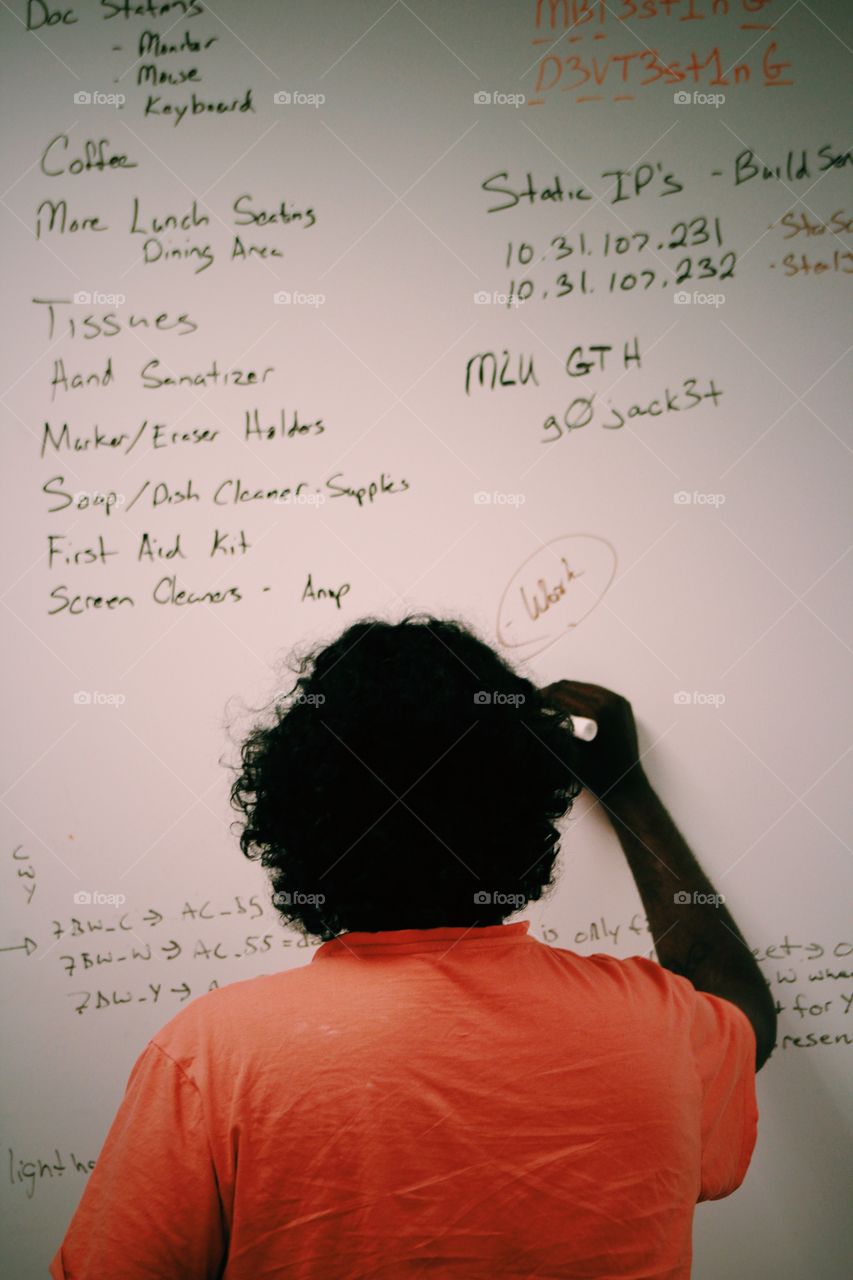 Doc Stations
- Monitor
- Mouse
- Keyboard
Coffee
More Lunch Seating
Dining Area
Tissues
Hand Sanatizer
Marker/Eraser Holders
Soap/Dish Cleaner Supplies
First Aid Kit
Screen Cleaners -
MBT3st1nG
D3VT3st1nG
Static IP's - Build
10.31.107.231
10.31.107.232
MLU GTH
gØjack3t
- Work
C
W
Y
7BW_C → AC_55
7BW_W → AC_55 =
is only
7BW_Y →
for Y